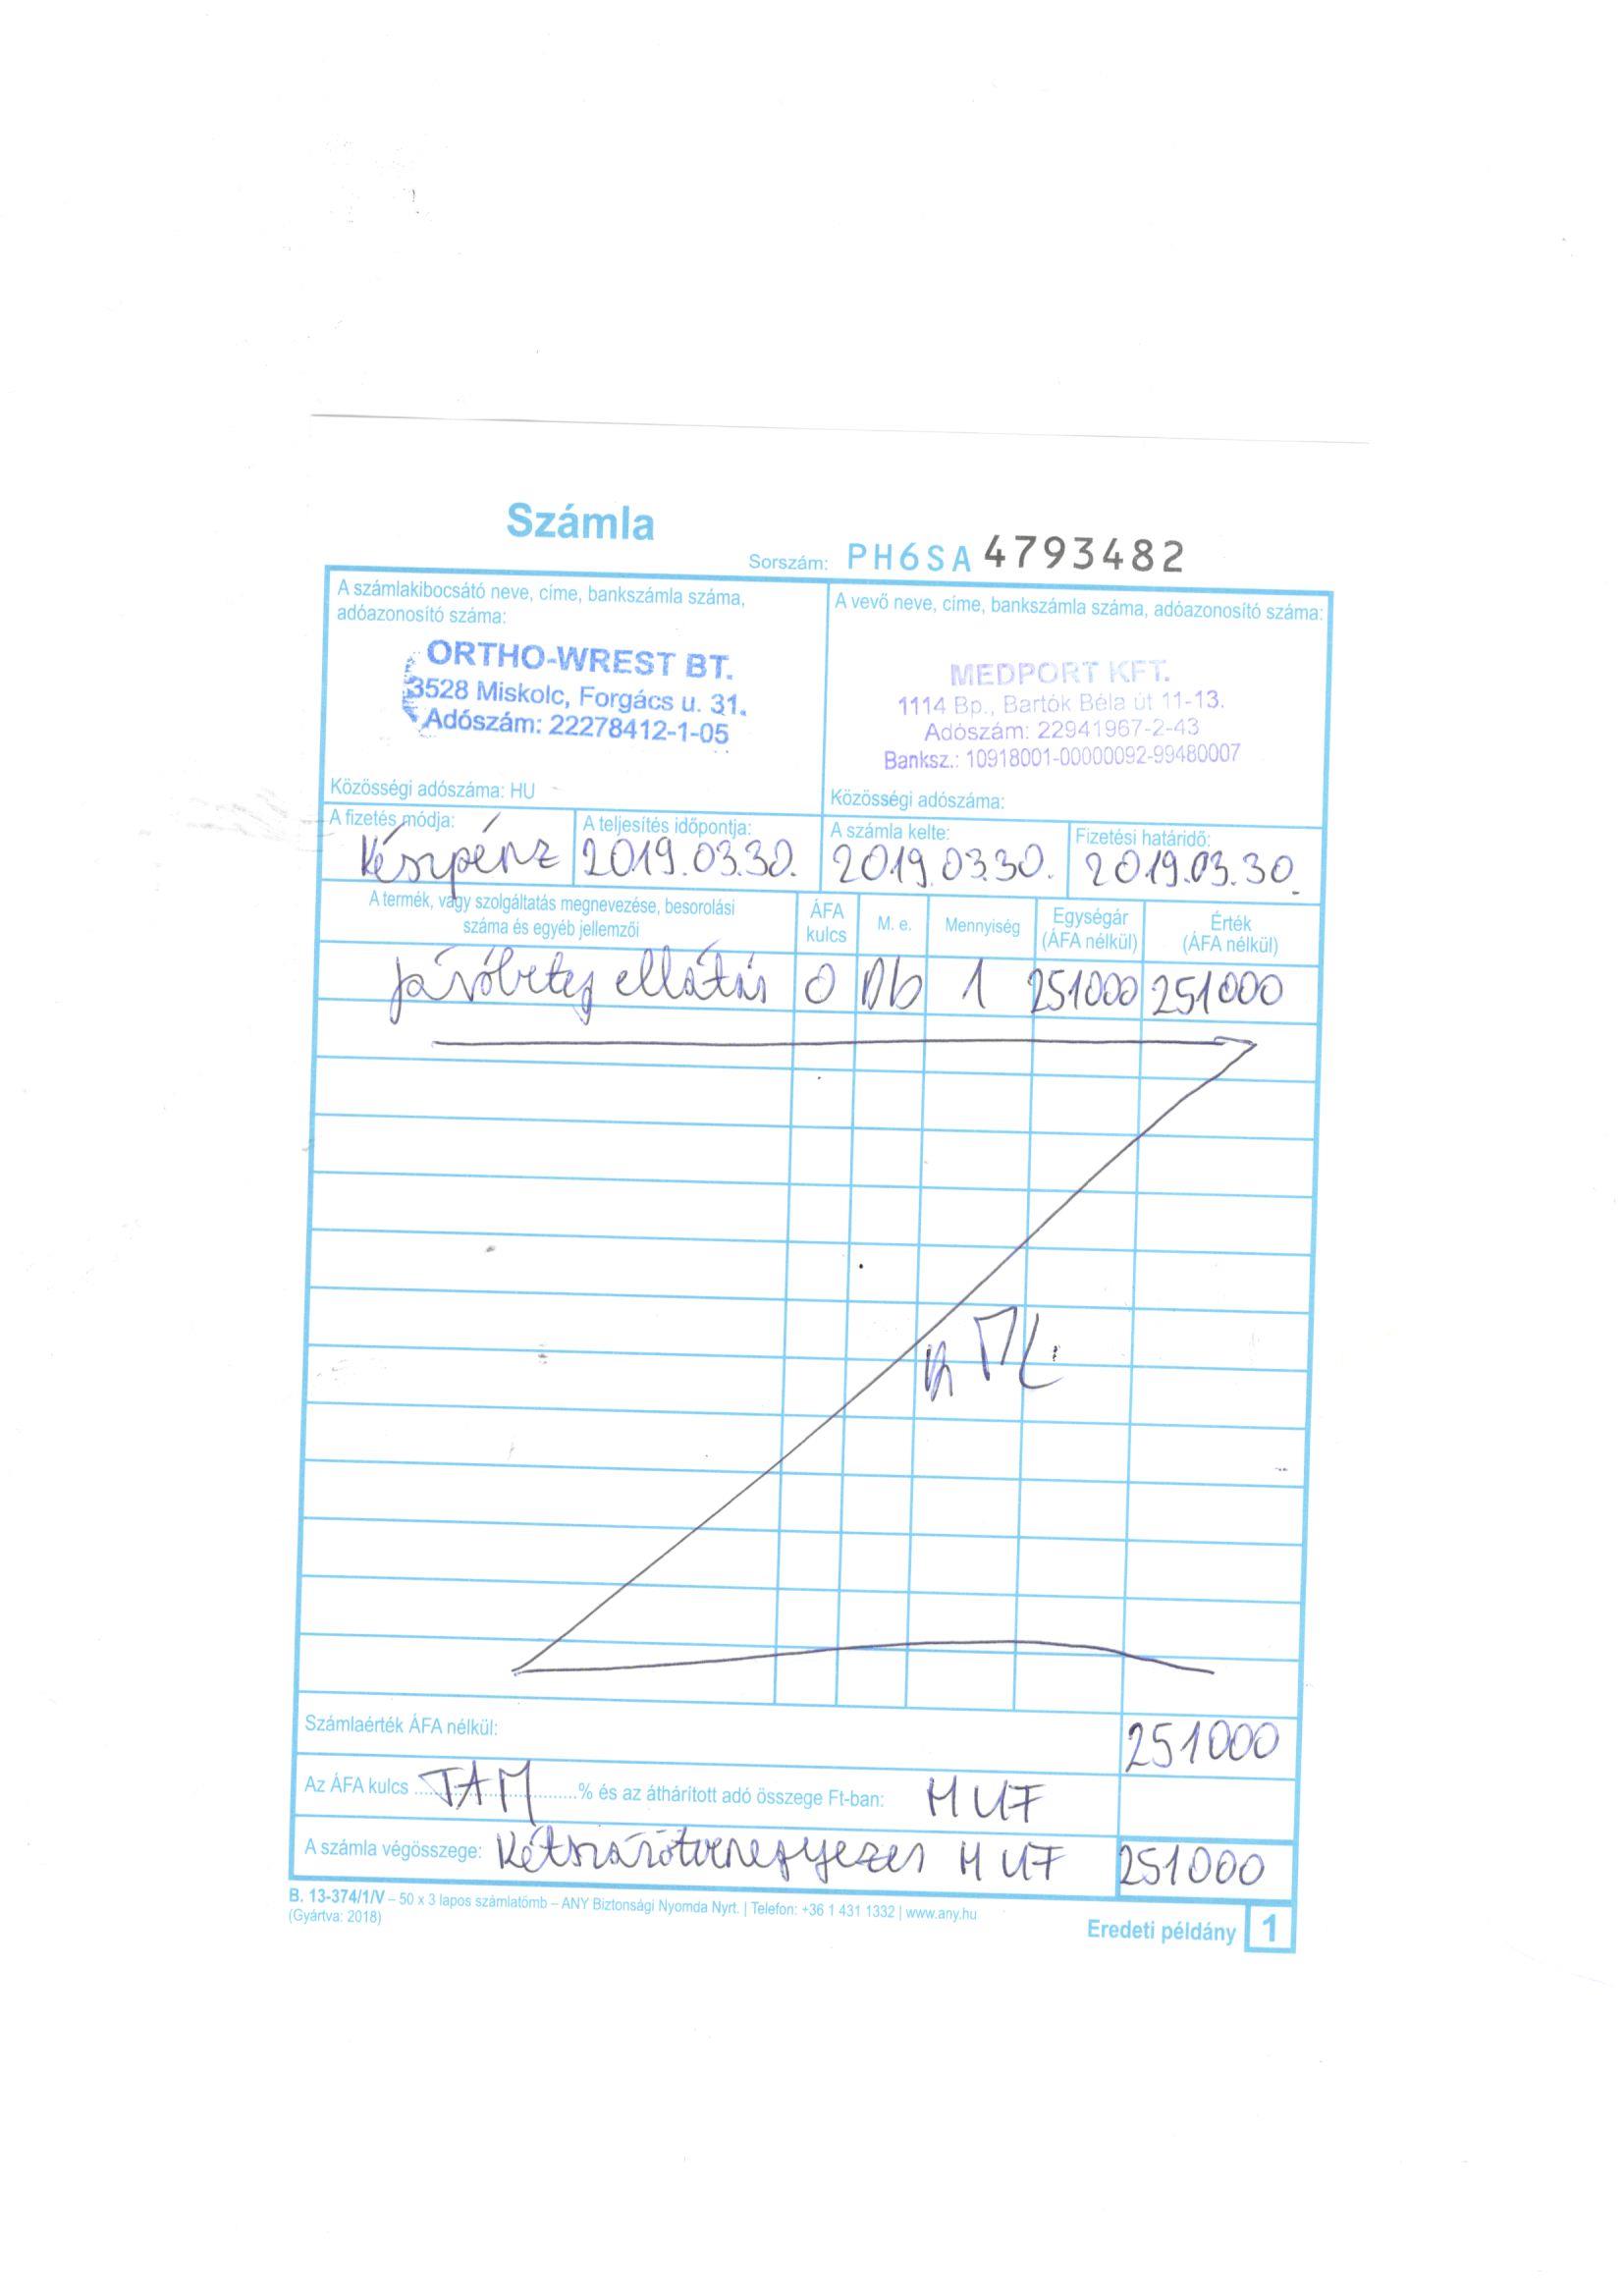 Számla
Sorszám: PH6SA 4793482
A számlakibocsátó neve, címe, bankszámla száma,
adóazonosító száma:
ORTHO-WREST BT.
3528 Miskolc, Forgács u. 31.
Adószám: 22278412-1-05
Közösségi adószáma: HU
A vevő neve, címe, bankszámla száma, adóazonosító száma:
MEDPORT KFT.
1114 Bp., Bartók Béla út 11-13.
Adószám: 22941967-2-43
Banksz.: 10918001-00000092-99480007
Közösségi adószáma:
A fizetés módja:
Készpénz
A teljesítés időpontja:
2019.03.30.
A számla kelte:
2019.03.30.
Fizetési határidő:
2019.03.30.
A termék, vagy szolgáltatás megnevezése, besorolási
száma és egyéb jellemzői
ÁFA
kulcs
M. e.
Mennyiség
Egységár
(ÁFA nélkül)
Érték
(ÁFA nélkül)
Járóbeteg ellátás 0 Db 1 251000 251000
Számlaérték ÁFA nélkül: 251000
Az ÁFA kulcs TAM % és az áthárított adó összege Ft-ban: HUF
A számla végösszege: Kétszázötvenegyezer HUF 251000
B. 13-374/1/V – 50 x 3 lapos számlatömb – ANY Biztonsági Nyomda Nyrt. | Telefon: +36 1 431 1332 | www.any.hu
(Gyártva: 2018)
Eredeti példány 1